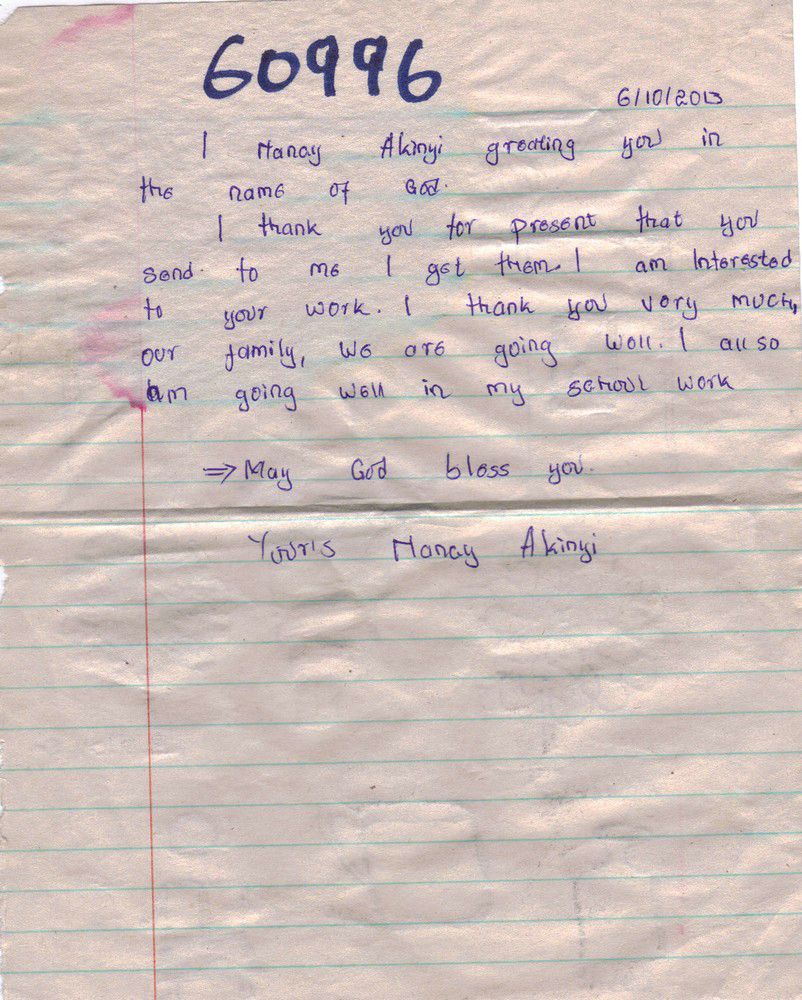 60996
6/10/2013
I Hanay Akinyi greating you in
the name of God.
I thank you for present that you
send. to me I get them. I am Interested
to your work. I thank you very much,
our family, we are going well. I allso
am going well in my school work
⇒ May God bless you.
Your's Hanay Akinyi